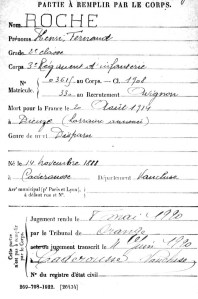 PARTIE À REMPLIR PAR LE CORPS.
Nom ROCHE
Prénoms Henri, Fernand
Grade 2e classe
Corps 3e Régiment d'infanterie
N° 3615 au Corps. — Cl. 1908
Matricule. 330 au Recrutement Avignon
Mort pour la France le 20 Août 1914
à Dieuze (Lorraine annexée)
Genre de mort Disparu
Né le 14 novembre 1888
à Caderousse Département Vaucluse
Arrt municipal (pr Paris et Lyon),
à défaut rue et N°.
Cette partie n'est pas à remplir par le Corps.
Jugement rendu le 8 mai 1920
par le Tribunal de Orange
acte ou jugement transcrit le 4 juin 1920
à Caderousse Vaucluse
N° du registre d'état civil
269-708-1922. [26434]